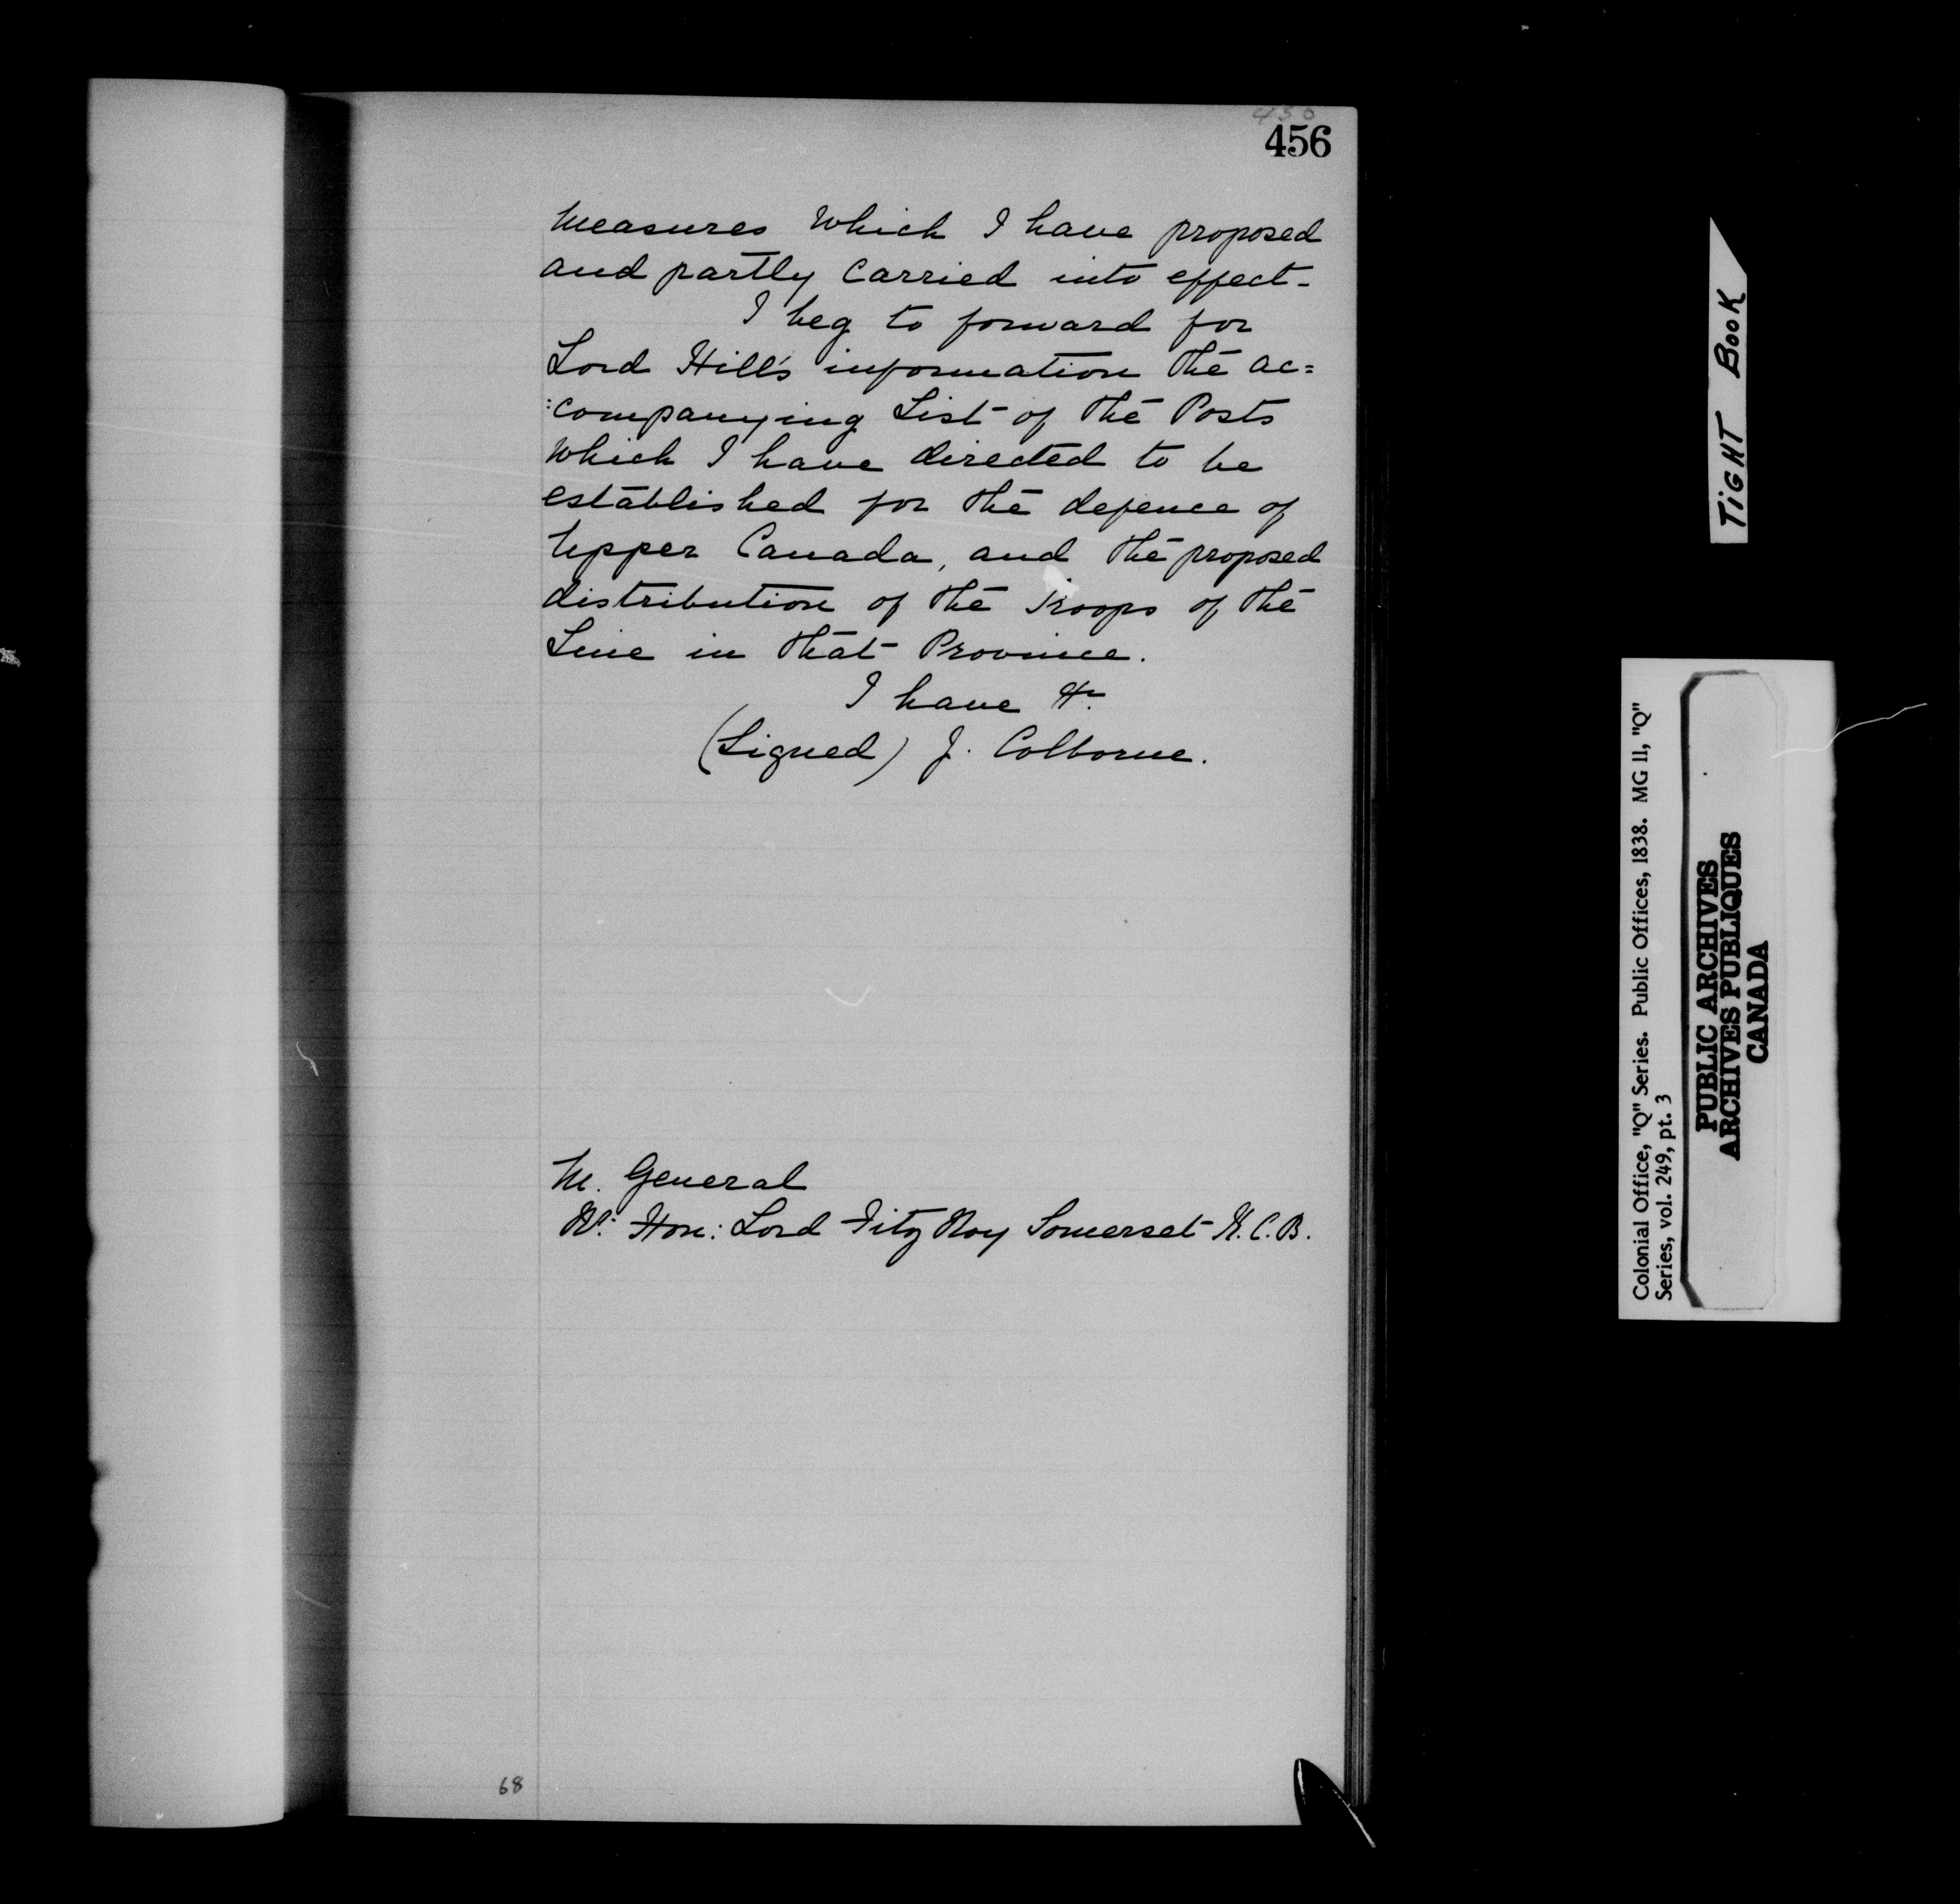 430
456
measures which I have proposed
and partly carried into effect-
I beg to forward for
Lord Hill's information the ac=
:companying List of the Posts
which I have directed to be
established for the defence of
Upper Canada, and the proposed
distribution of the Troops of the
Line in that Province.
I have &c.
(Signed) J. Colborne.
M. General
Rt. Hon: Lord Fitz Roy Somerset K.C.B.
68
TIGHT BOOK
Colonial Office, "Q" Series. Public Offices, 1838. MG 11, "Q"
Series, vol. 249, pt. 3
PUBLIC ARCHIVES
ARCHIVES PUBLIQUES
CANADA